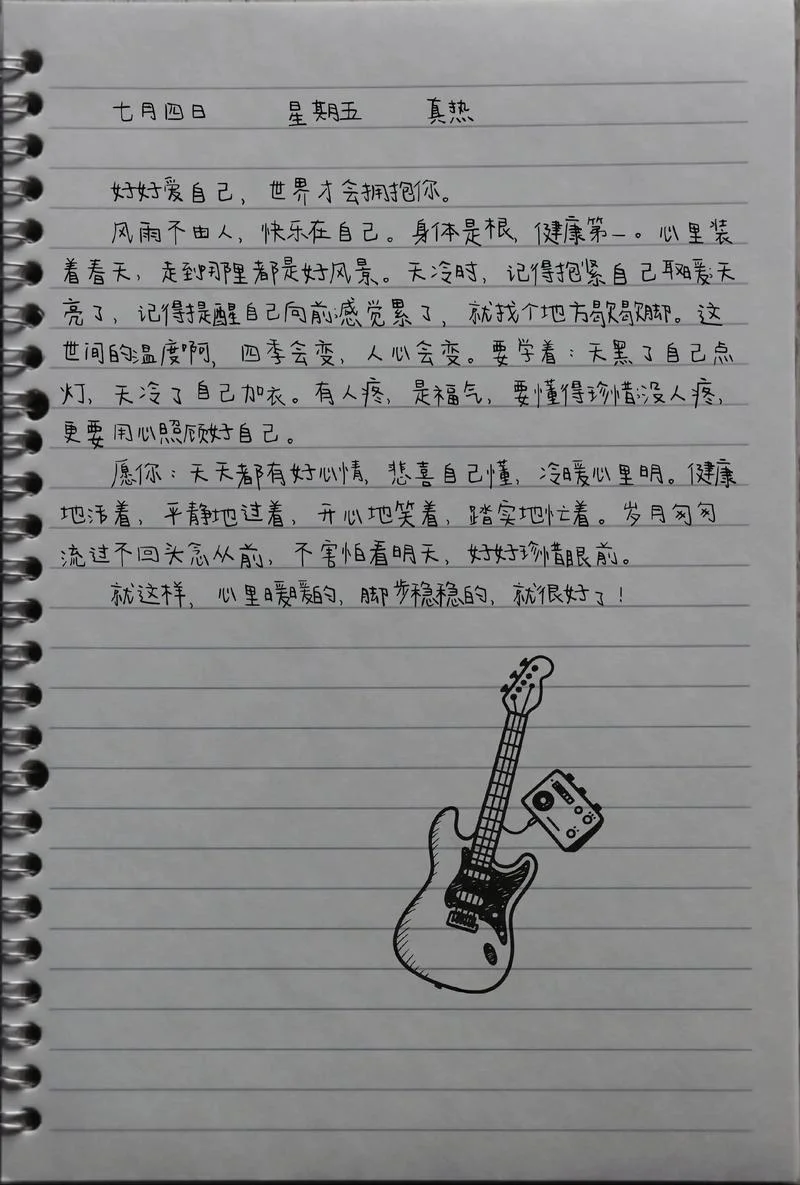 七月四日 星期五 真热
好好爱自己，世界才会拥抱你。
风雨不由人，快乐在自己。身体是根，健康第一。心里装
着春天，走到哪里都是好风景。天冷时，记得抱紧自己取暖；天
亮了，记得提醒自己向前；感觉累了，就找个地方歇歇脚。这
世间的温度啊，四季会变，人心会变。要学着：天黑了自己点
灯，天冷了自己加衣。有人疼，是福气，要懂得珍惜；没人疼，
更要用心照顾好自己。
愿你：天天都有好心情，悲喜自己懂，冷暖心里明。健康
地活着，平静地过着，开心地笑着，踏实地忙着。岁月匆匆
流过不回头念从前，不害怕看明天，好好珍惜眼前。
就这样，心里暖暖的，脚步稳稳的，就很好了！